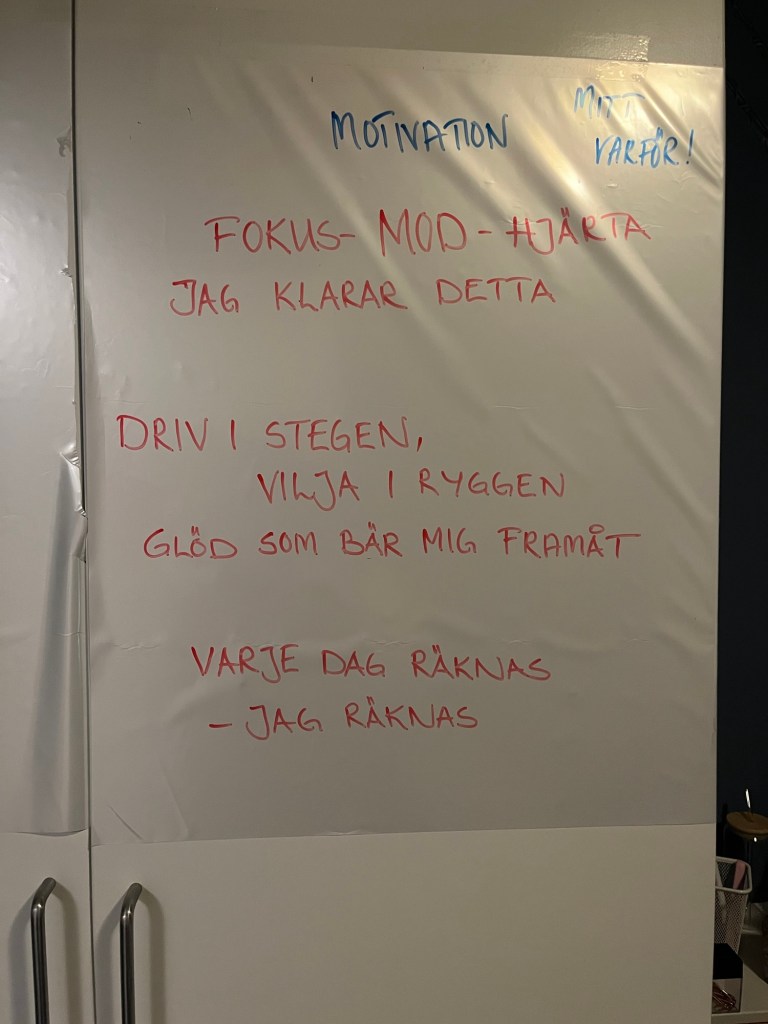 MOTIVATION
MITT
VARFÖR!
FOKUS- MOD - HJÄRTA
JAG KLARAR DETTA
DRIV I STEGEN,
VILJA I RYGGEN
GLÖD SOM BÄR MIG FRAMÅT
VARJE DAG RÄKNAS
- JAG RÄKNAS